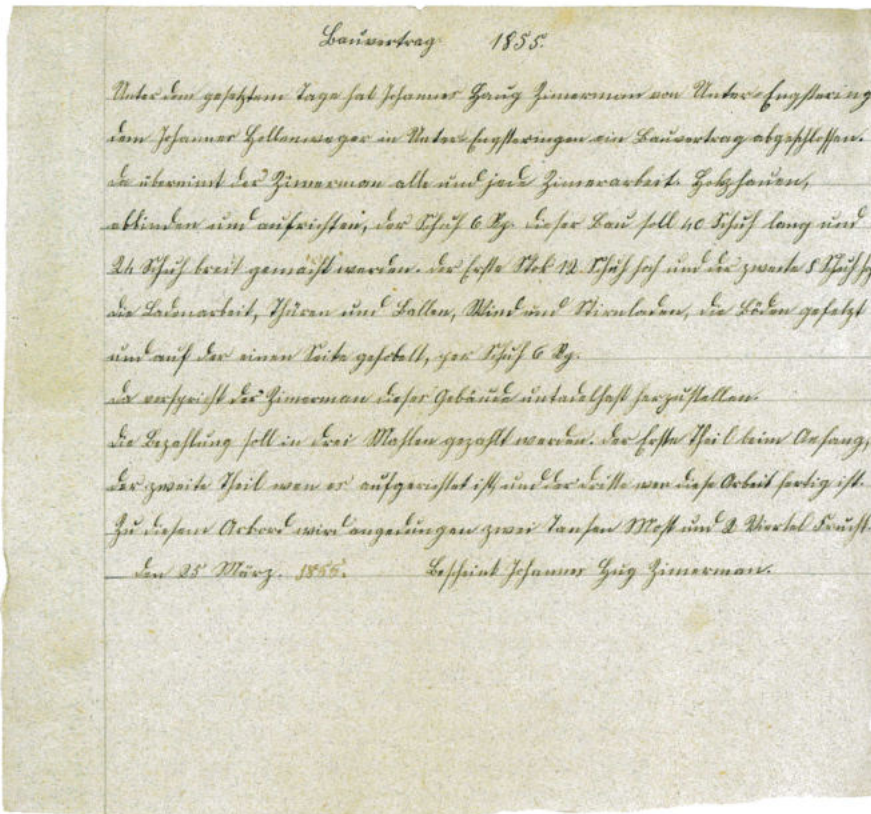 Bauvertrag 1855.
Unter dem gesetztem Tage hat Johannes Haug Zimerman von Unter-Engstering
dem Johannes Hollenweger in Unter-Engstringen ein Bauvertrag abgeschlossen.
Da übernimt der Zimerman alle und jede Zimerarbeit. Holzhauen,
abbinden und aufrichten, der Schuh 6 Rp. Dieser Bau soll 40 Schuh lang und
24 Schuh breit gemacht werden. Der Erste Stok 12 Schuh hoch und der zweite 8 Schuh
die Ladenarbeit, Thüren und Ballen, Wind und Stirnladen, die Böden gefelzt
und auf der einen Seite gehobelt, per Schuh 6 Rp.
Da verspricht der Zimerman dieses Gebäude untadelhaft herzustellen.
Die Bezahlung soll in drei Mahlen gezahlt werden. Der Erste Theil beim Anfang,
der zweite Theil wen es aufgerichtet ist, und der dritte wen diese Arbeit fertig ist.
Zu diesem Acbord wird angedungen zwei Tansen Most und 2 Viertel Frucht.
Den 25 März. 1855. Bescheint Johannes Hug Zimerman.